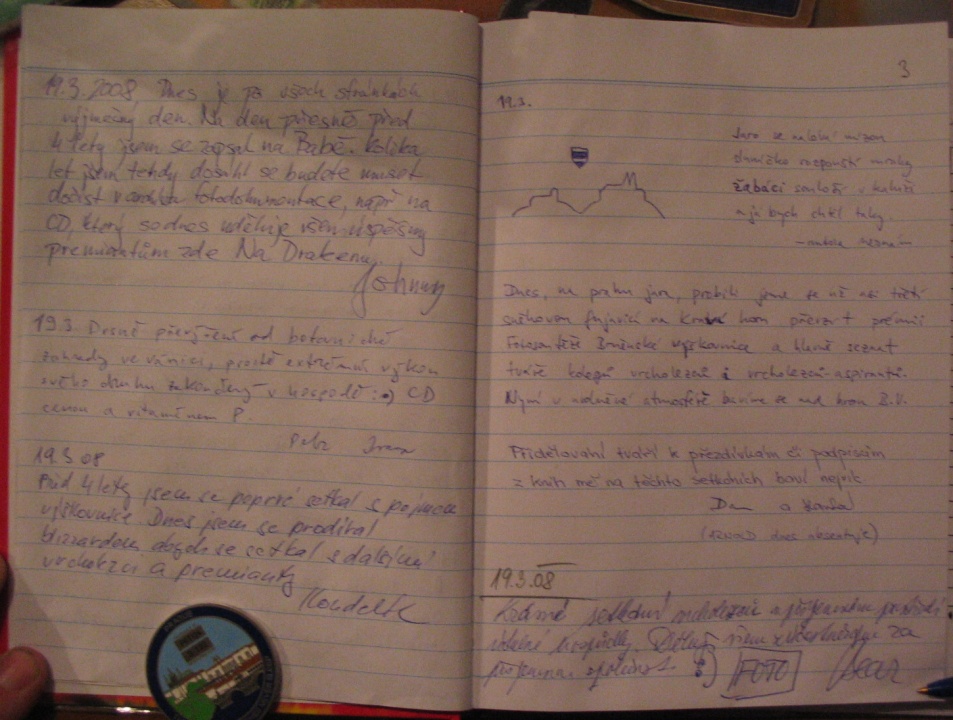 19.3.2008, Dnes je po všech stránkách
výjimečný den. Na den přesně před
4 lety jsem se zapsal na Babě. Kolika
let jsem tehdy dosáhl se budete muset
dočíst v archivu fotodokumentace, např na
CD, který se dnes uděluje všem úspěšným
premiantům zde Na Drakenu.
Johnny
19.3. Drsné převýšení od botanické
zahrady ve vánici, prostě extrémní výkon
svého druhu zakončený v hospodě :o) CD
cenou a vitamínem P.
Petr
19.3 08
Před 4 lety jsem se poprvé setkal s pojmem
výškovnice. Dnes jsem se prodíral
blizzardem, abych se setkal s dalšími
vrcholezci a premianty
3
19.3.
Jaro se
sluníčko rozpouští mraky
žabáci souloží v kaluži
a já bych chtěl taky.
Dnes, na prahu jara, probili jsme se už asi třetí
sněhovou fujavicí na Kraví horu převzít prémii
Fotosoutěže Brněnské výškovnice a hlavně seznat
tváře kolegů vrcholezců i vrcholezců-aspirantů.
Nyní v atmosféře bavíme se nad knihou B.V.
Přidělování tváří k přezdívkám či podpisům
z knih mě na těchto setkáních baví nejvíc.
a
dnes absentuje)
19.3.08
setkání vrcholezců v příjemném prostředí
všem za
příjemnou společnost :)
FOTO